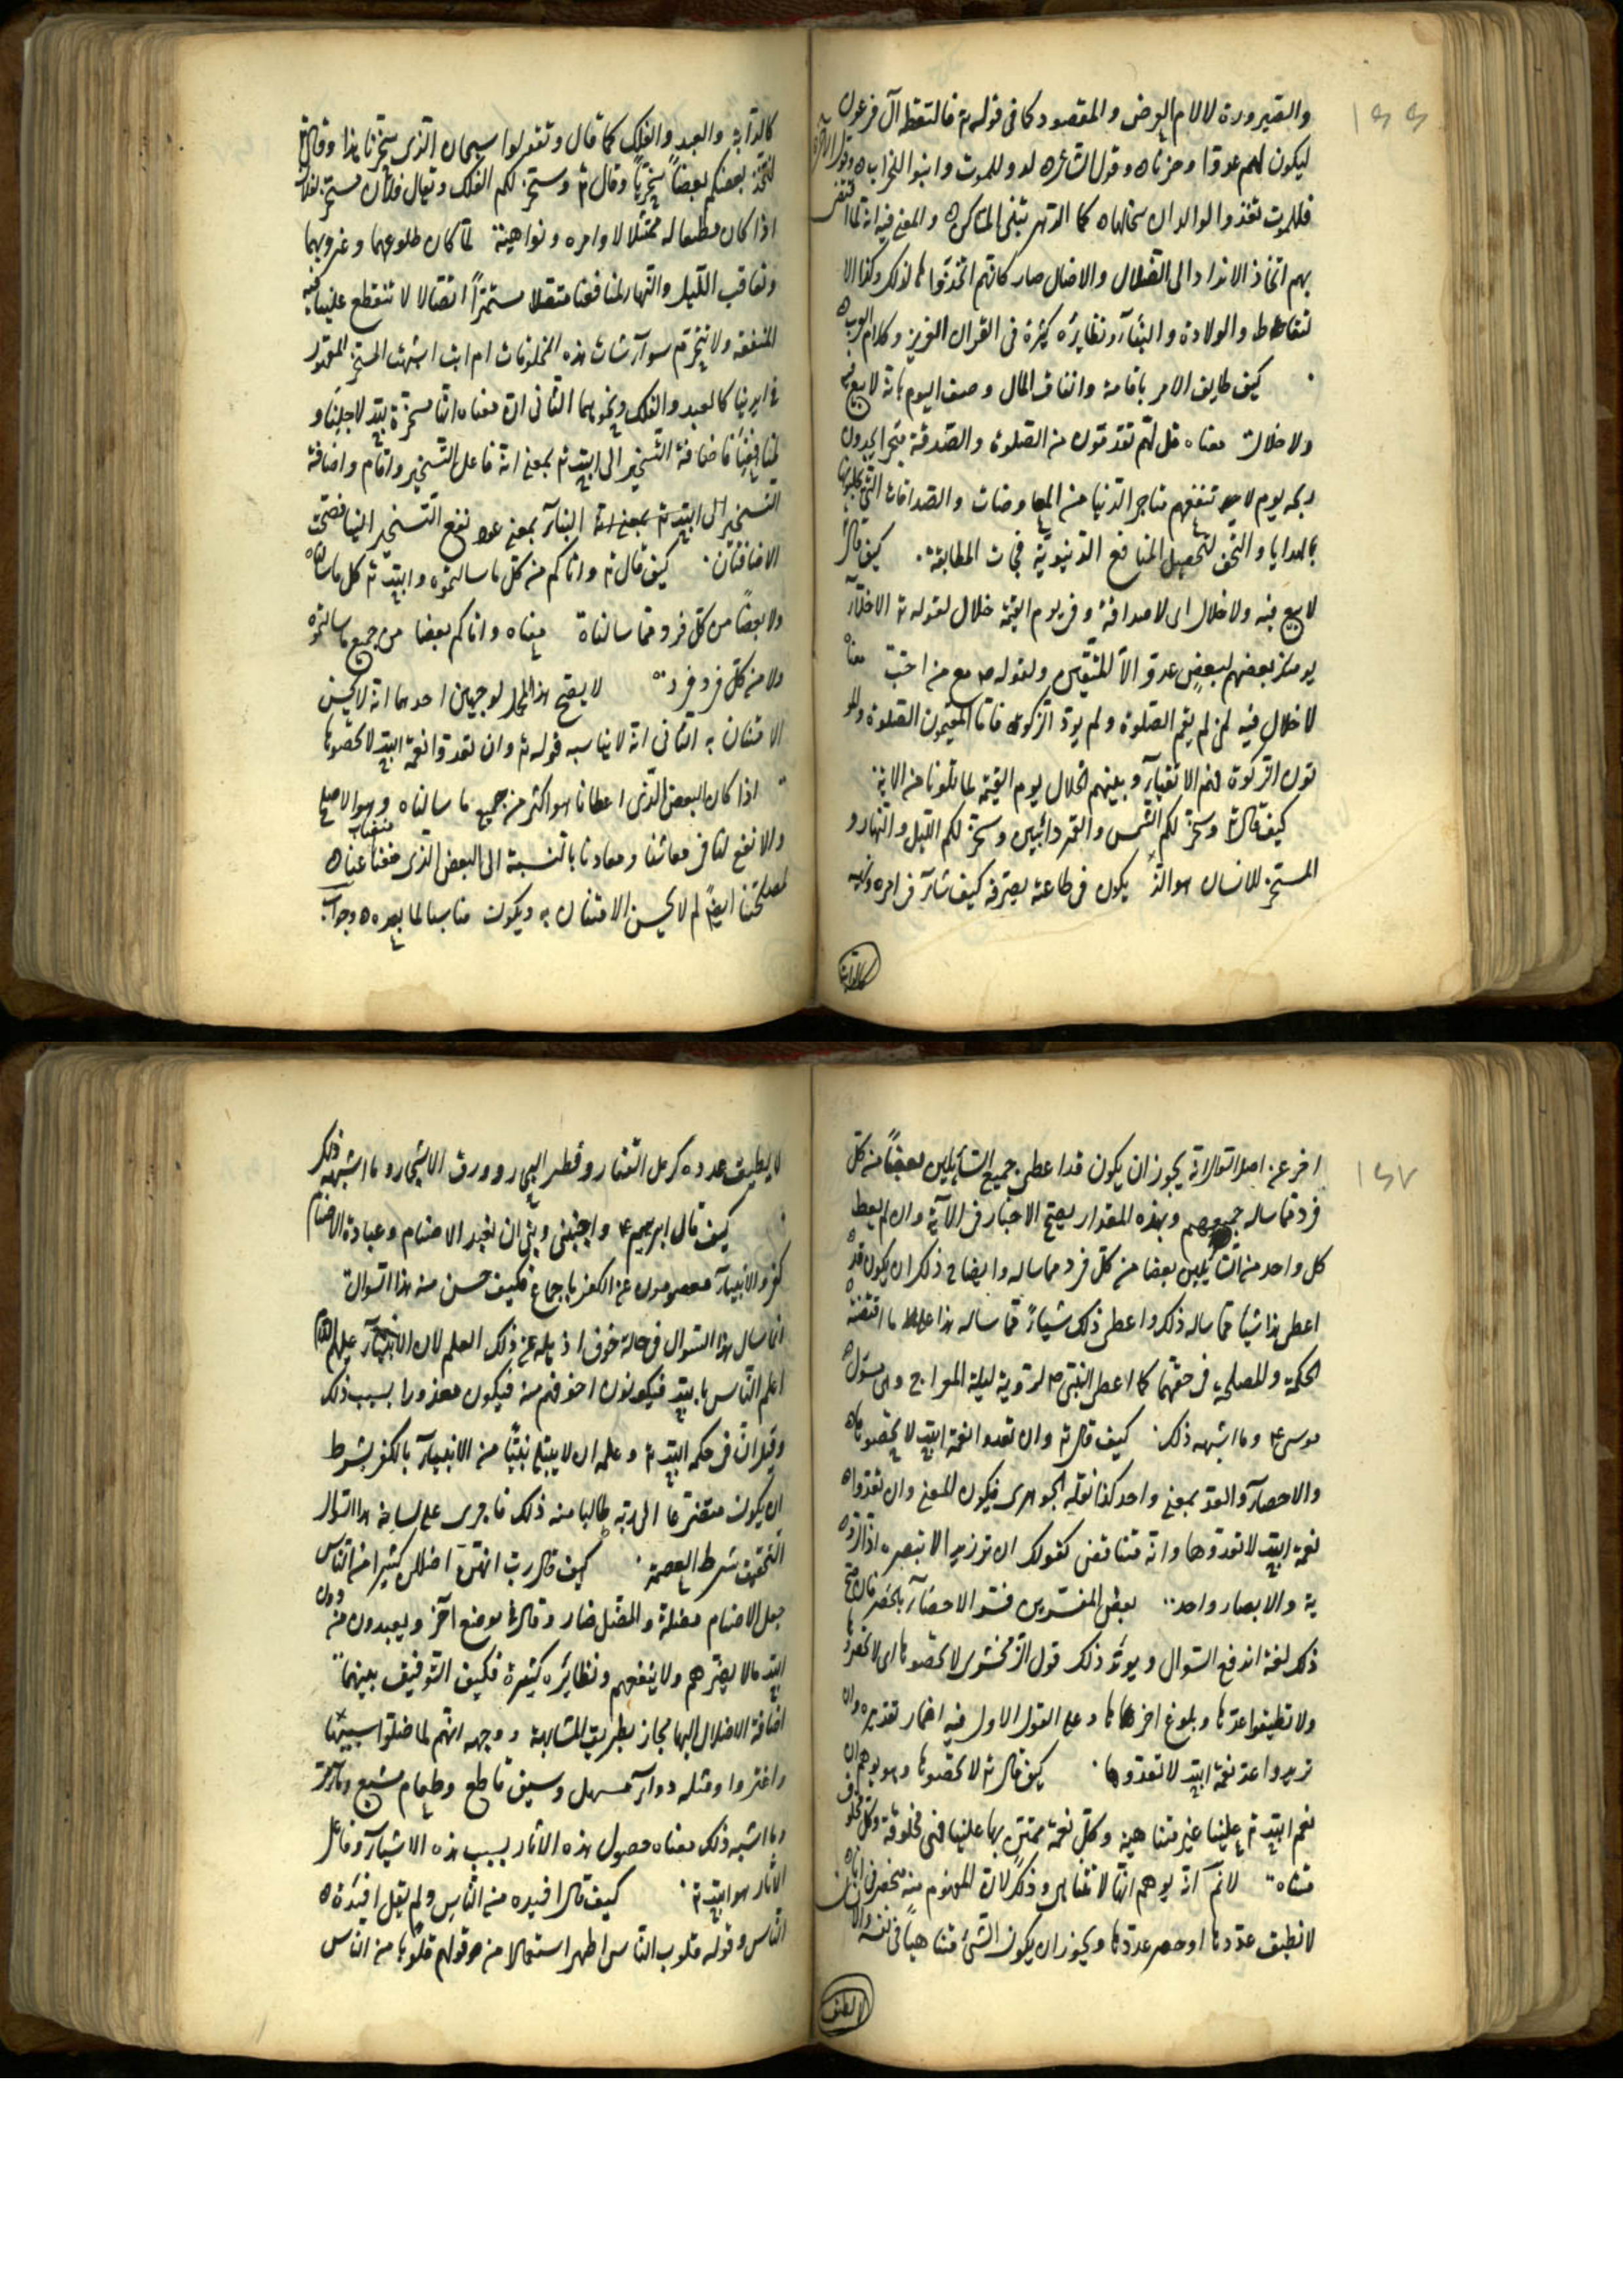 والصيرورة لا لام الغرض والمقصود كما فى قوله تع فالتقطه آل فرعون
ليكون لهم عدوا وحزنا وقول الشاعر لدو للموت وابنوا للخراب وقول الآخر
فللموت تغذوا الوالدات سخالها كما الدهر تبنى المساكن والمعنى فيه انه لما افضى
بهم اتخاذ الانداد الى الضلال والاضلال صار كانهم اتخذوها لذلك وكذا الا
لتقاط والولادة والبناء ونظايره كثيرة فى القران العزيز وكلام العرب
كيف طابق الامر باقامة وانفاق المال وصف اليوم بانه لا بيع فيه
ولا خلال معناه قل لهم تقدمون من الصلوة والصدقة متجرا يجدون
ربحه يوم لا تنفعهم متاجر الدنيا من المعاوضات والصداقات التى يجلبونها
بالهدايا والتحف لتحصيل المنافع الدنيوية فجات المطابقة . كيف قال
لا بيع فيه ولا خلال اى لا صداقة وفى يوم القيمة خلال لقوله تع الاخلاء
يومئذ بعضهم لبعض عدو الا المتقين ولقوله ص مع من احب معناه
لا خلال فيه لمن لم يقم الصلوة ولم يود الزكوة فاما المقيمون الصلوة والمو
تون الزكوة فهم الاتقياء وبينهم الخلال يوم القيمة لما تلونا من الاية .
كيف قال تع وسخر لكم الشمس والقمر دائبين وسخر لكم الليل والنهار و
المسخر للانسان هو الذى يكون فى طاعته يصرفه كيف شاء فى امره ونهيه
كالدابة
١٦٦
كالدابة والعبد والفلك كما قال وتقولوا سبحان الذى سخر لنا هذا وقال
ليتخذ بعضكم بعضا سخريا وقال تع وسخر لكم الفلك ويقال فلان مسخر لفلان
اذا كان مطيعا له ممتثلا لاوامره ونواهيه لما كان طلوعهما وغروبهما
وتعاقب الليل والنهار لمنافعنا متصلا مستمرا اتصالا لا تنقطع علينا فيه
المنفعة ولا تنخرم سواء شات هذه المخلوقات ام ابت اشبهت المسخر المقهور
فى ايدينا كالعبد والفلك ونحوهما الثانى ان معناه انها مسخرة لله لاجلنا و
لمنافعنا فاضافة التسخير الى الله تع بمعنى انه فاعل التسخير واقام واضافة
التسخير الى الله تع بمعنى انه الينا بمعنى عود نفع التسخير الينا فصحت
الاضافتان . كيف قال تع واتاكم من كل ما سالتموه والله تع كل ما سالناه
ولا بعضا من كل فرد مما سالناه معناه واتاكم بعضا من جميع ما سالتموه
ولا من كل فرد فرد لا يصح هذا المحمل لوجهين احدهما انه لا يحسن
الامتنان به الثانى انه لا يناسبه قوله تع وان تعدوا نعمة الله لا تحصوها
اذا كان البعض الذى اعطانا هو اكثر من جميع ما سالناه وهو الاصلح
والانفع لنا فى معاشنا ومعادنا بالنسبة الى البعض الذى منعنا عنه
لمصلحتنا ايضا لم لا يحسن الامتنان به ويكون مناسبا لما بعده وجواب
اخر عن اصل السوال انه يجوز ان يكون قد اعطى جميع السائلين بعضا من كل
فرد مما ساله جميعهم وبهذه المقدار يصح الاخبار فى الآية وان لم يعط
كل واحد من السائلين بعضا من كل فرد مما ساله وايضاح ذلك ان يكون قد
اعطى هذا شيئا مما ساله ذلك واعطى ذلك شيئا مما ساله هذا على ما اقتضته
الحكمة والمصلحة فى حقهما كما اعطى النبى ص الروية ليلة المعراج وهى مسئول
موسى ع وما اشبهه ذلك . كيف قال تع وان تعدوا نعمة الله لا تحصوها
والاحصاء والعد بمعنى واحد كذا نقله الجوهرى فيكون المعنى وان تعدوا
نعمة الله لا تعدوها وانه متناقض كقولك ان تر زيدا لا تبصره اذ الرو
ية والابصار واحد بعض المفسرين فسر الاحصاء بالحصر فان صح
ذلك لغة اندفع السوال ويويد ذلك قول الزمخشرى لا تحصوها اى لا تحصروها
ولا تطيقوا عدها وبلوغ اخرها وعلى القول الاول فيه اضمار تقديره وان
تريدوا عد نعمة الله لا تعدوها . كيف قال تع لا تحصوها وهو يوهم ان
نعم الله تع علينا غير متناهية وكل نعمة ممتن بها علينا فهى مخلوقة وكل مخلوق
متناه لا نم انه يوهم انها لا تتناهى وذلك لان المفهوم منه منحصر فى انا
لا نطيق عددها او حصر عددها ويجوز ان يكون الشئ متناهيا فى نفسه والانسان
لا يطيق
١٦٧
لا يطيق عدده كرمل القفار وقطر البحار وورق الاشجار وما اشبه ذلك
كيف قال ابراهيم ع واجنبنى وبنى ان نعبد الاصنام وعبادة الاصنام
كفر والانبياء معصومون عن الكفر باجماع فكيف حسن منه هذا السوال
انما سال هذا السوال فى حالة خوف اذهله عن ذلك العلم لان الانبياء عليهم
اعلم الناس بالله فيكونون اخوفهم منه فيكون معذورا بسبب ذلك
وقيل ان فى حكمة الله تع وعلمه ان لا يبتلى نبيا من الانبياء بالكفر بشرط
ان يكون متضرعا الى ربه طالبا منه ذلك فاجرى على لسانه هذا السوال
لتحقيق شرط العصمة . كيف قال رب انهن اضللن كثيرا من الناس
جعل الاصنام مضلة والمضل ضار وقال فى موضع آخر ويعبدون من دون
الله ما لا يضرهم ولا ينفعهم ونظايره كثيرة فكيف التوفيق بينهما
اضافة الاضلال اليها مجاز بطريق المشابهة ووجهه انهم لما ضلوا بسببها
واغتروا ومثله دواء مسهل وسيف قاطع وطعام مشبع
وما اشبه ذلك معناه حصول هذه الاثار بسبب هذه الاشياء وفاعل
الاثار هو الله تع . كيف قال افئدة من الناس ولم يقل افئدة
الناس وقوله قلوب الناس اظهر استعمالا من قولهم قلوبا من الناس